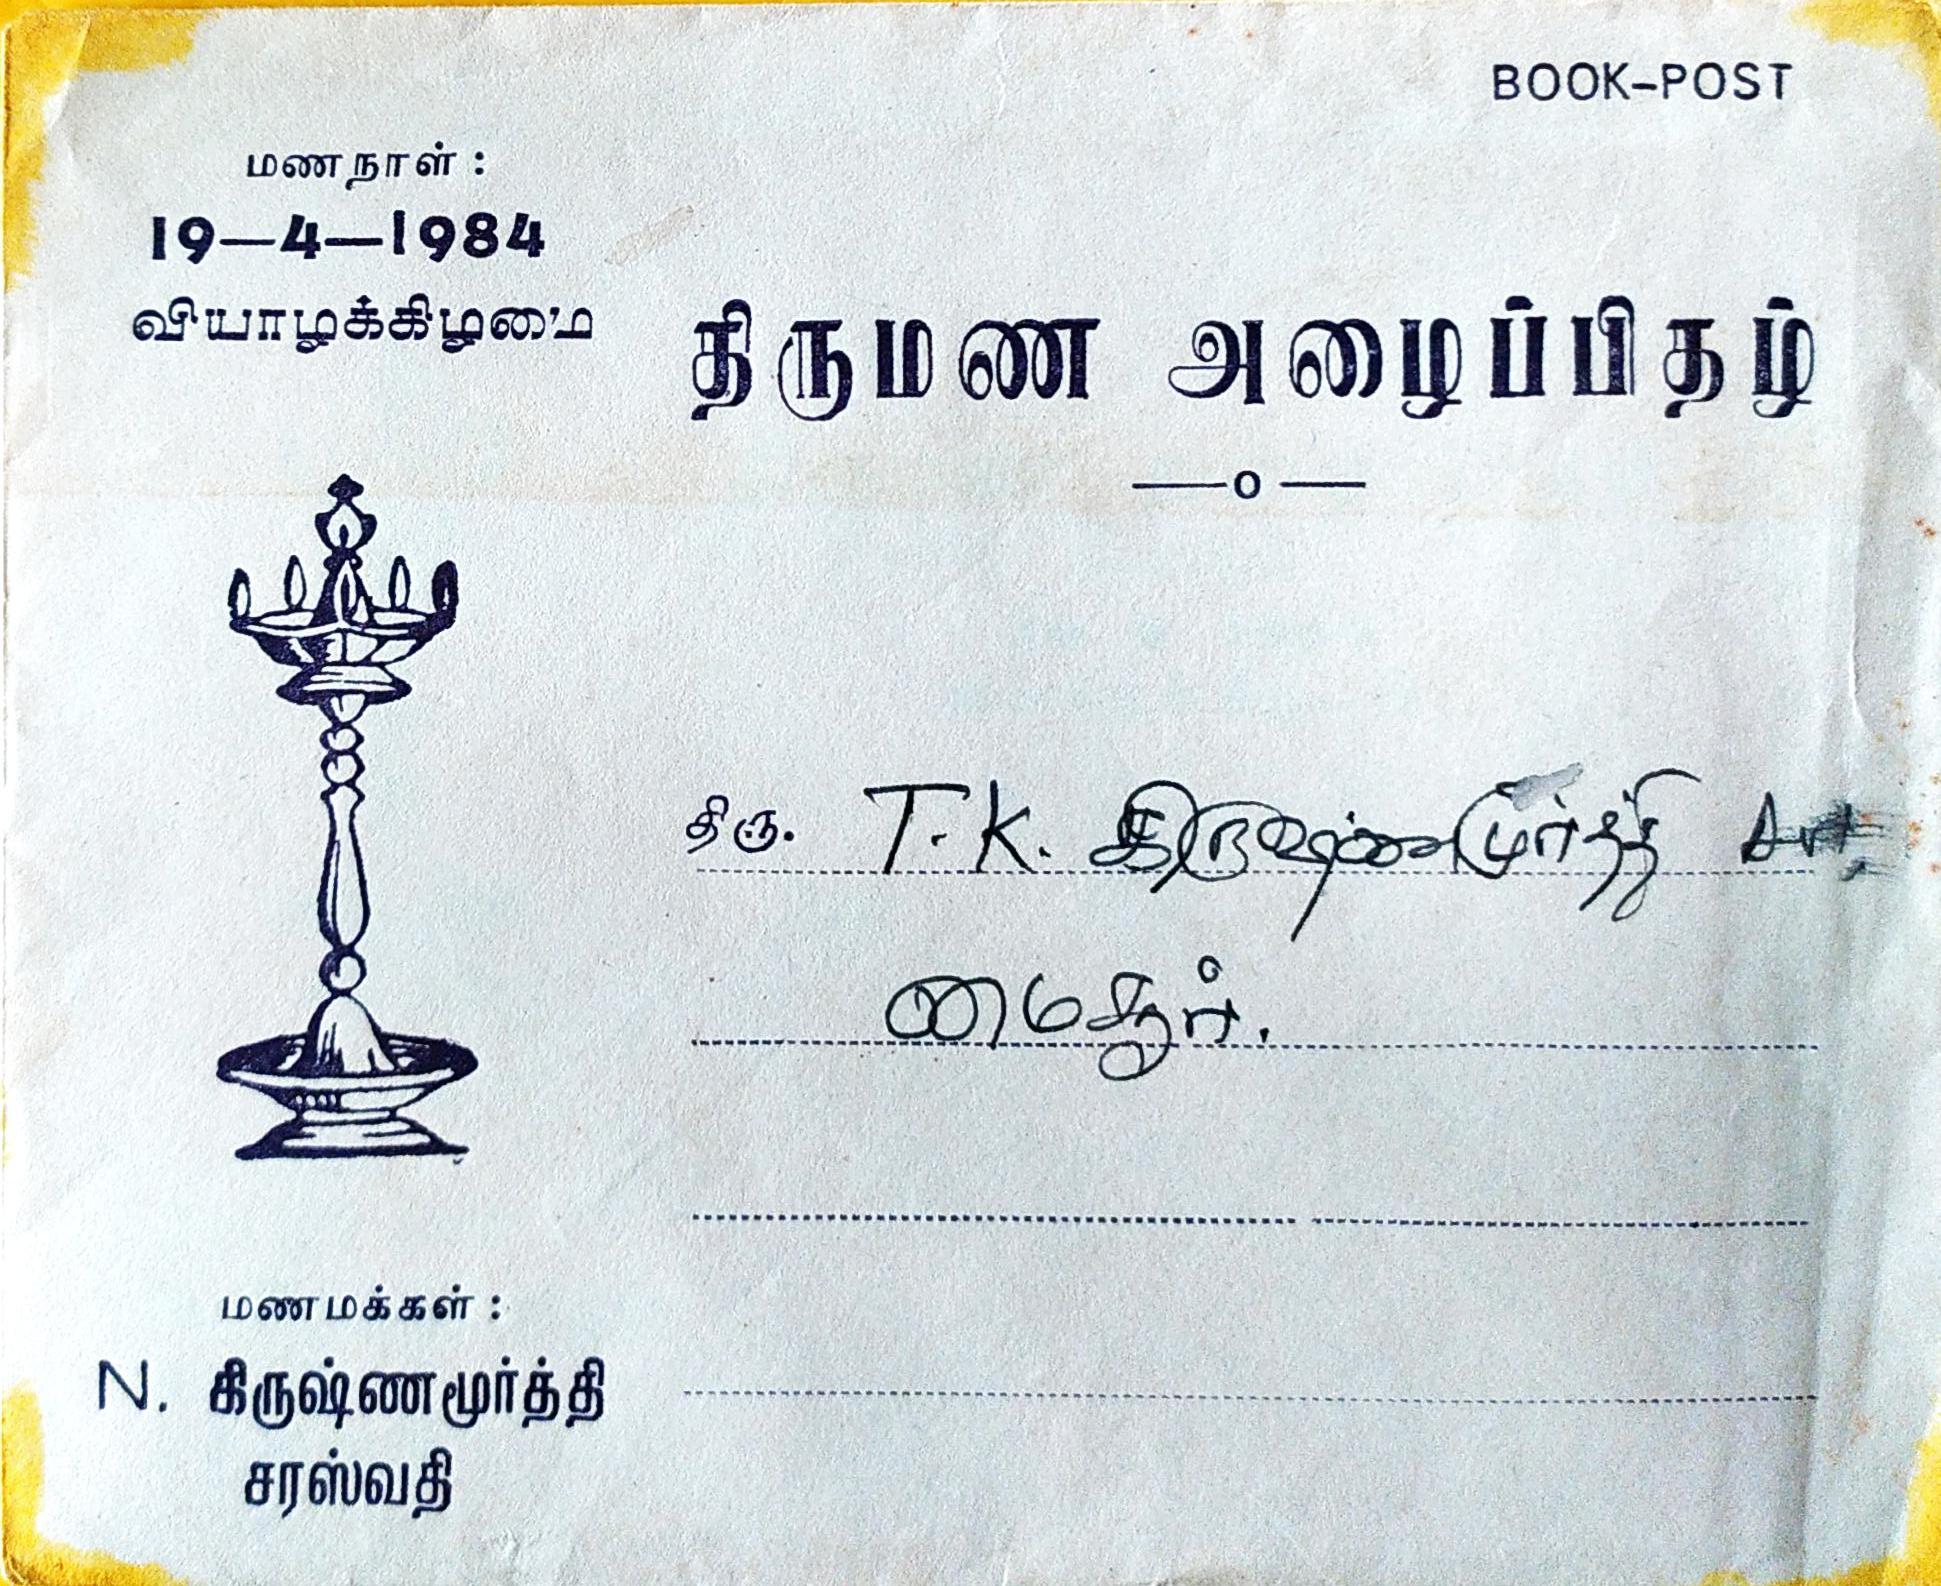 BOOK-POST
மணநாள் :
19-4-1984
வியாழக்கிழமை
திருமண அழைப்பிதழ்
திரு. T. K. கிருஷ்ணமூர்த்தி
மைசூர்.
மணமக்கள் :
N. கிருஷ்ணமூர்த்தி
சரஸ்வதி